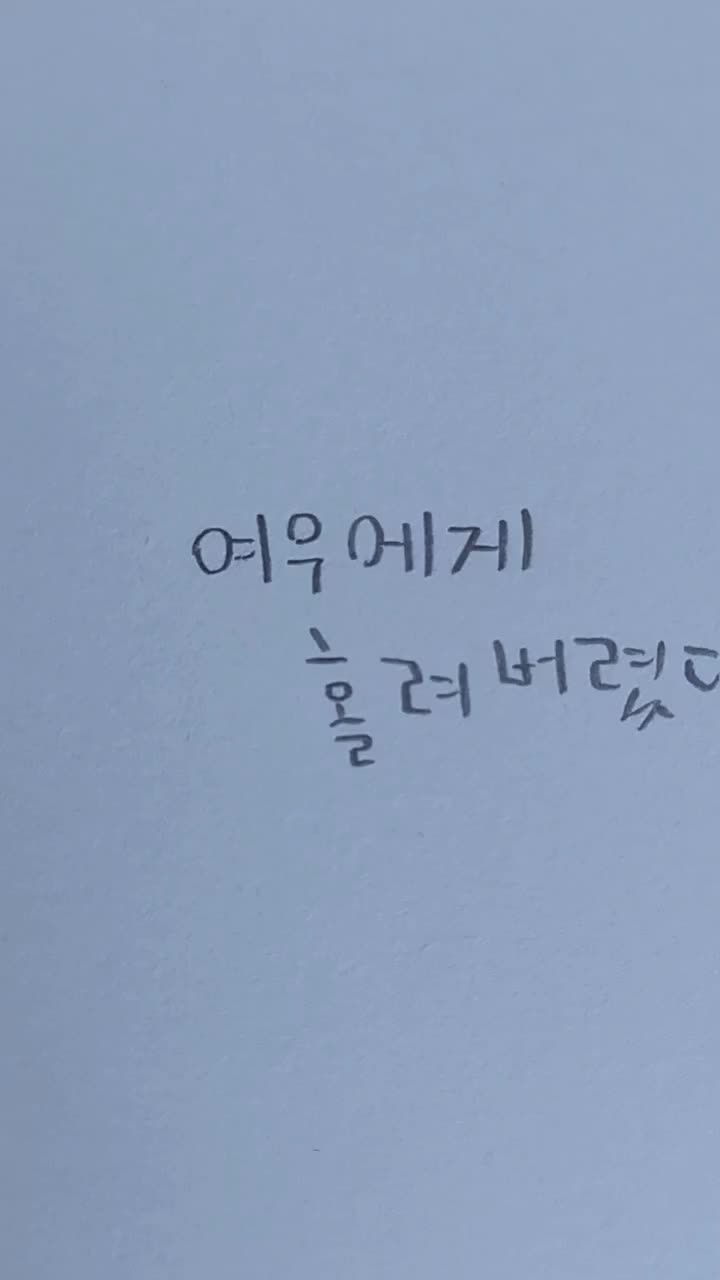 여우에게
홀려버렸